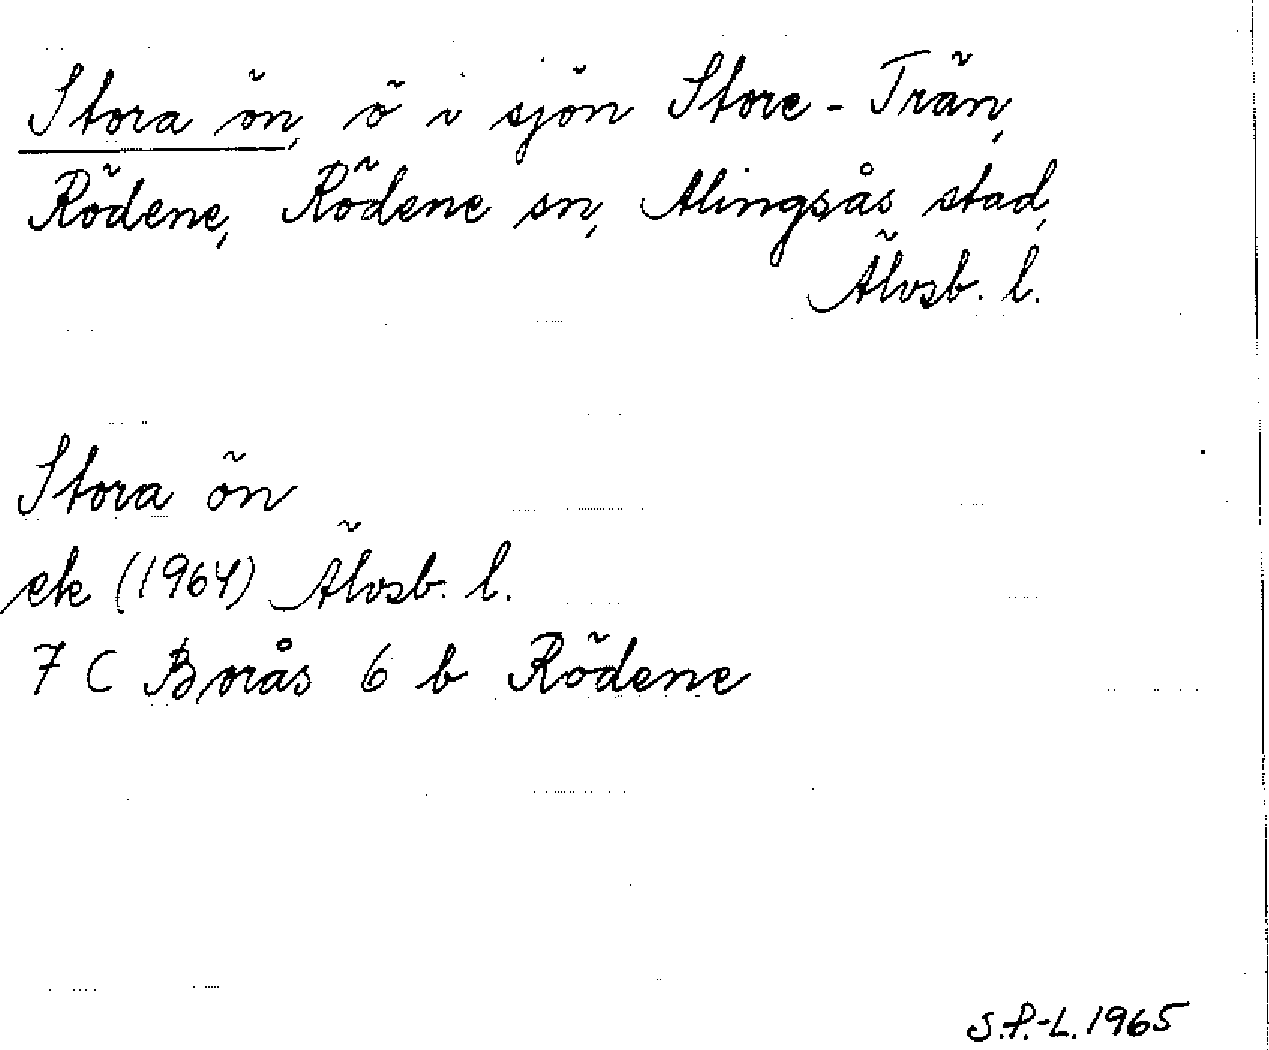 Stora ön, ö i sjön Store-Trän,
Rödene, Rödene sn, Alingsås stad,
Älvsb. l.
Stora ön
ek (1964) Älvsb. l.
7 C Borås 6 b Rödene
S.P.-L. 1965